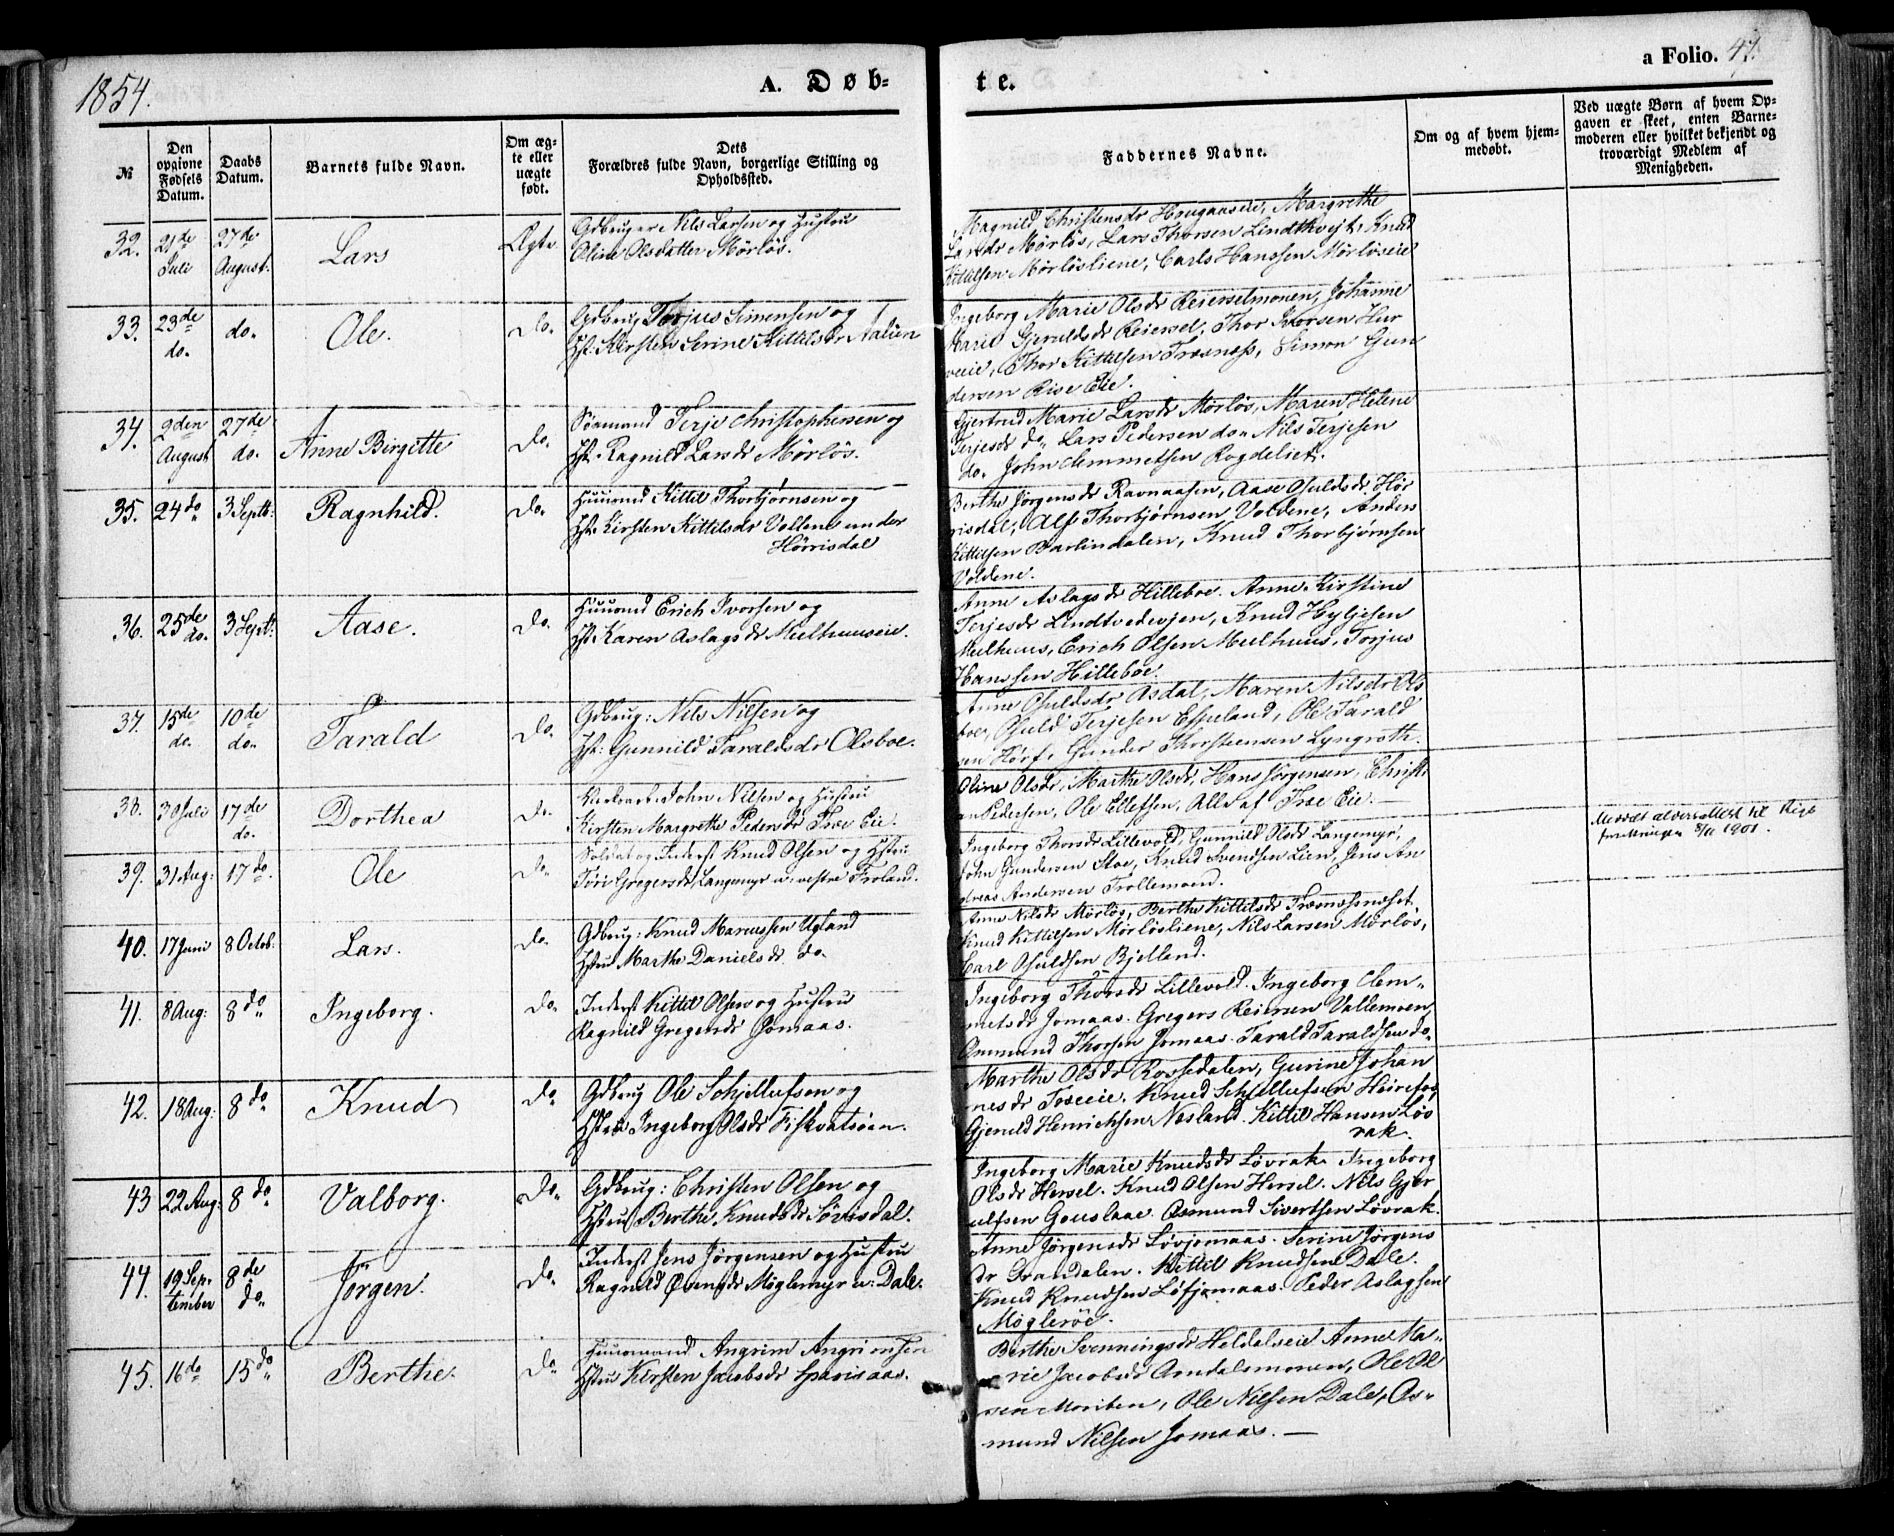 1854.
A. Døb-
te.
a Folio. 47.
№
Den opgivne Fødsels Datum.
Daabs Datum.
Barnets fulde Navn.
Om ægte eller uægte født.
Dets
Forældres fulde Navn, borgerlige Stilling og
Opholdssted.
Faddernes Navne.
Om og af hvem hjemmedøbt.
Ved uægte Børn af hvem Opgaven er skeet, enten Barnemoderen eller hvilket bekjendt og troværdigt Medlem af Menigheden.
32. 21de Juli 27de August. Lars Ægte
Gdbruger Nils Larsen og Hustru
Oline Olsdatter Mørløs.
Magnild Christensdr Hougaaseie, Margrethe
Larsdr Mørløs, Lars Thorsen Lindtkvejt, Knud
Kittilsen Mørløsliene, Carls Hanssen Mørløseie
33. 23de do. do. Ole. do.
Gdbrug Torjus Simensen og
Hst. Kirsten Serine Kittilsdr Aalien
Ingeborg Marie Olsdr Reierselmonen, Johanne
Marie Gjeruldsdr Reiersel, Thor Ivorsen Hur
veie, Thor Kittilsen Træsness, Simon Gun
dersen Rise Eie.
34. 9den August 27de do. Anne Birgitte do.
Sømand Terje Christophersen og
Hst. Ragnild Larsdr Mørløs.
Gjertrud Marie Larsdr Mørløs, Maren Helene
Terjesdr do. Lars Pedersen do. Nils Terjesen
do. John Clemmetsen Rogdeliet.
35. 24 do 3 Septb: Ragnhild. do.
Huusmd Kittil Thorbjørnsen og
Hst. Kirsten Kittilsdr Voldene under
Hørrisdal
Berthe Jørgensdr Ravnaasen, Aase Osuldsdr Hør
risdal, Alf Thorbjørnsen Voldene, Anders
Kittilsen Barlindalen, Knud Thorbjørnsen
Voldene.
36. 25de do. 3 Septb: Aase. do.
Huusmd Erich Ivorsen og
Hst. Karen Aslagsdr Mülhuuseie.
Anne Aslagsdr Hilleboe. Anne Kirstine
Terjesdr Lindtvedvejen, Knud Hyljesen
Mülhuus, Erich Olsen Mülhuus, Torjus
Hanssen Hilleboe.
37. 15de do. 10de do. Tarald do.
Gdbrug: Nils Nilsen og
Hst. Gunnild Taraldsdr Olsboe.
Anne Osuldsdr Osdal, Maren Nilsdr Ols
boe, Osuld Terjesen Espeland, Ole Tarald
sen Hørf, Gunder Thorsteensen Lyngroth.
38. 30 Juli 17de do. Dorthea do.
John Nilsen og Hustru
Kirsten Margrethe Pedersdr Træ Eie.
Oline Olsdr, Marthe Olsdr, Hans Jørgensen, Christi
an Pedersen, Ole Ellefsen, Alle af Træ Eie. —
Alderattest til
8/11 1901.
39. 31 Aug: 17 do. Ole do.
Soldat og Inderst Knud Olsen og Hstru
Tøri Gregersdr Langemyr u. vestre Froland.
Ingeborg Thorsdr Lillevold, Gunnild Olsdr Langemyr,
John Gundersen Stoe, Knud Svendsen Lien, Jens An
dreas Andersen Trollemoend.
40. 17 Juni 8 Octob: Lars. do.
Gdbrug: Knud Marcussen Ugland
Hstru Marthe Danielsdr do.
Anne Nilsdr Mørløs, Berthe Kittilsdr Træsnæsnæset,
Knud Kittilsen Mørløsliene, Nils Larsen Mørløs,
Carl Osuldsen Bjelland.
41. 8 Aug: 8 do Ingeborg. do.
Inderst Kittil Olsen og Hustru
Ragnild Gregersdr Jomaas.
Ingeborg Thorsdr Lillevold. Ingeborg Clem-
metsdr Jomaas. Gregers Reiersen Vallemoen,
Ommund Thorsen Jomaas. Tarald Taraldsen do.
42. 18 Aug: 8 do Knud do
Gdbrug Ole Schjellufsen og
Hstru Ingeborg Olsdr Fiskvatsøen.
Marthe Olsdr Rossedalen, Gurine Johan
nesdr Toseeie. Knud Schjellufsen Heirefos
Gjeruld Henrichsen Nesland. Kittil Hansen Løv
rak.
43 22 Aug: 8 do Valborg. do.
Gdbrug: Christen Olsen og
Hstru Berthe Knudsdr Søvisdal.
Ingeborg Marie Knudsdr Løvrak. Ingeborg
Olsdr Hersel. Knud Olsen Hersel. Nils Gjer
ulfsen Gouslaae. Osmund Sivertsen Løvrak.
44. 19 September 8de do. Jørgen. do.
Inderst Jens Jørgensen og Hustru
Ragnild Øvensdr Møglemyr u: Dale.
Anne Jørgensdr Løvjomaas. Serine Jørgens
dr Grandalen. Kittil Knudsen Dale.
Knud Knudsen Løfjomaas. Peder Aslagsen
Møglerøe.
45. 16 do 15 do Berthe. do
Huusmand Angrim Angrimsen
Hstru Kirsten Jacobsdr Sparisaas.
Berthe Svenningsdr Heldaleie Anne Ma-
rie Jacobsd Arndalsmonen, Ole Ol
sen Moriben, Ole Nilsen Dale, As-
mund Nilsen Jomaas. —